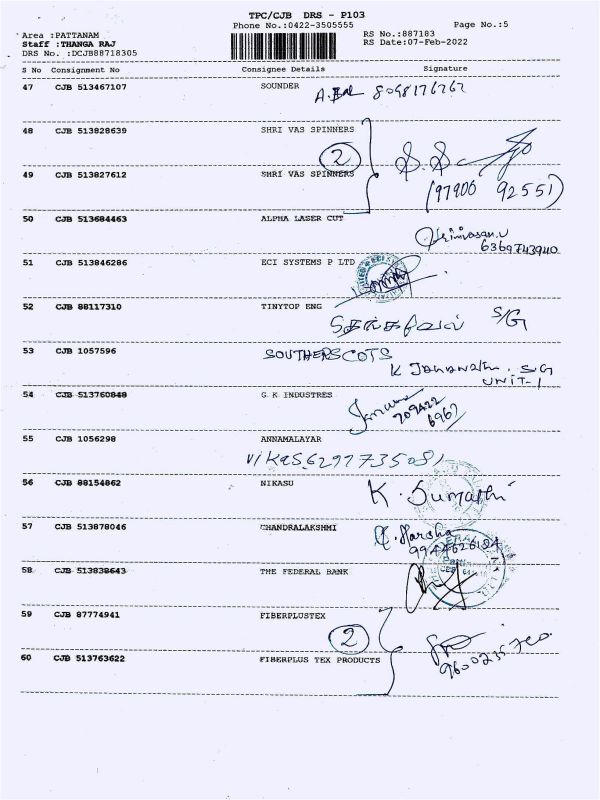 TPC/CJB DRS - P103
Phone No.:0422-3505555
Page No.:5
Area :PATTANAM
RS No.:887183
Staff :THANGA RAJ
RS Date:07-Feb-2022
DRS No. :DCJB88718305
S No Consignment No Consignee Details Signature
47 CJB 513467107 SOUNDER
48 CJB 513828639 SHRI VAS SPINNERS
2
49 CJB 513827612 SHRI VAS SPINNERS
(97900 92551)
50 CJB 513684463 ALPHA LASER CUT
Srinivasan.V
6369743940
51 CJB 513846286 ECI SYSTEMS P LTD
52 CJB 88117310 TINYTOP ENG
S/G
53 CJB 1057596 SOUTHERSCOTS
UNIT-1
54 CJB 513760848 G K INDUSTRES
55 CJB 1056298 ANNAMALAYAR
56 CJB 88154862 NIKASU K. Sumathi
57 CJB 513878046 CHANDRALAKSHMI
58 CJB 513838643 THE FEDERAL BANK
59 CJB 87774941 FIBERPLUSTEX
2
60 CJB 513763622 FIBERPLUS TEX PRODUCTS